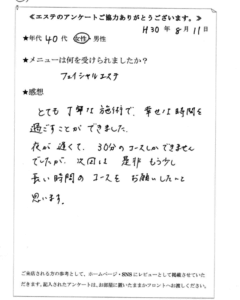 ≪エステのアンケートご協力ありがとうございます。≫
H30年 8月11日
★年代 40代 女性・男性
★メニューは何を受けられましたか？
フェイシャルエステ
★感想
とても丁寧な施術で、幸せな時間を
過ごすことができました。
夜が遅くて、30分のコースしかできません
でしたが、次回は是非もう少し
長い時間のコースをお願いしたいと
思います。
ご来店される方の参考として、ホームページ・SNSにレビューとして掲載させていた
だきます。記入されたアンケートは、お部屋に置いたままかフロントへお渡しください。